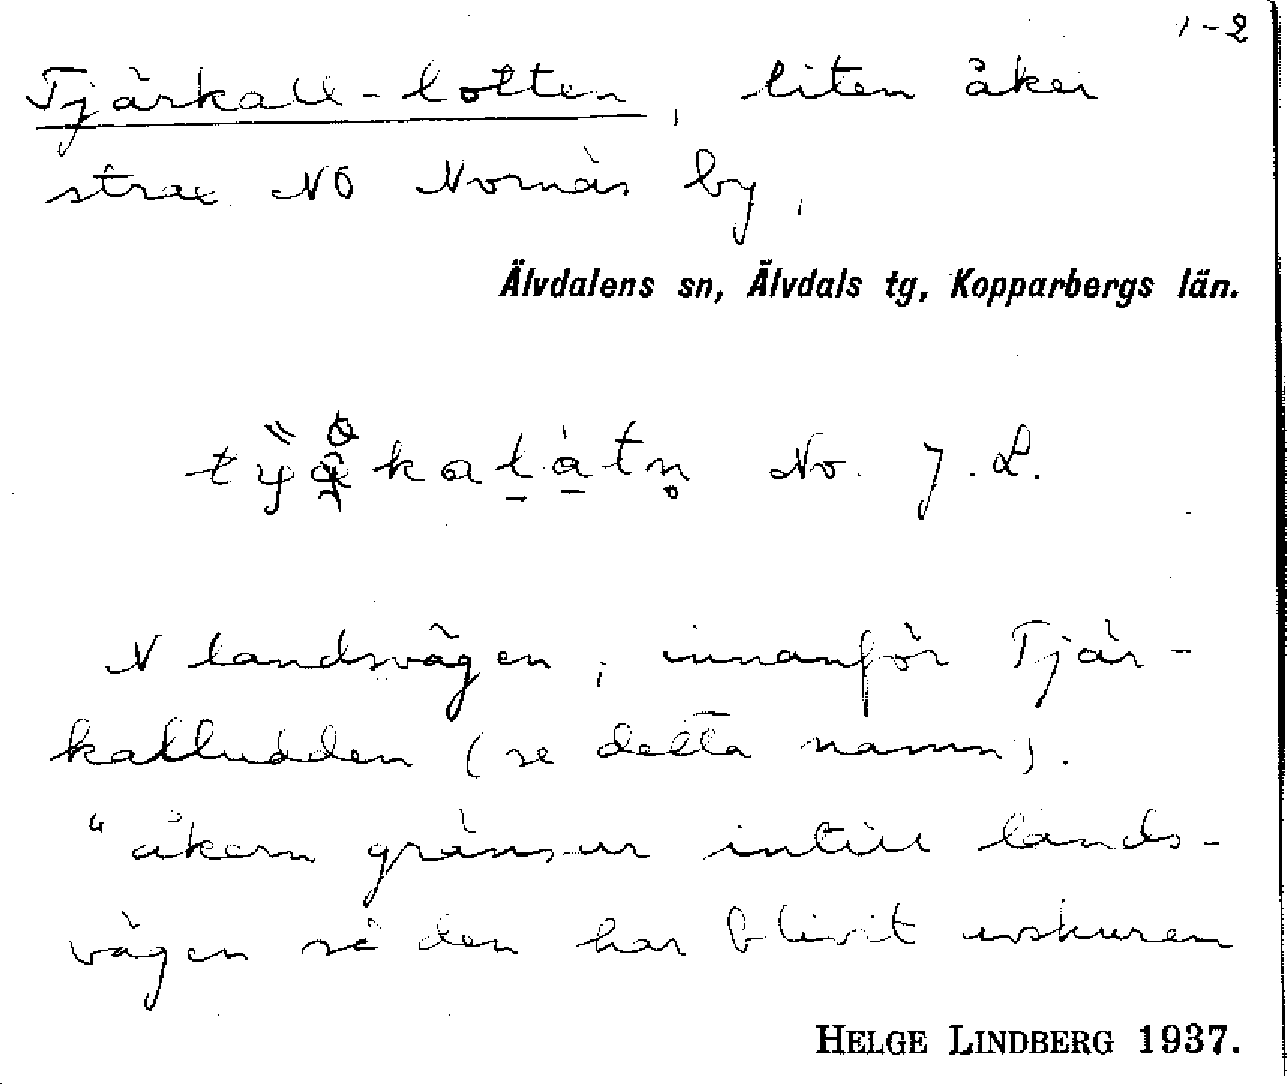 1-2
Tjärkall-lotten, liten åker
strax NO Nornäs by,
Älvdalens sn, Älvdals tg, Kopparbergs län.
No. J. L.
N landsvägen, innanför Tjär-
kalludden (se detta namn).
"åkern gränsar intill lands-
vägen så den har blivit urskuren
HELGE LINDBERG 1937.